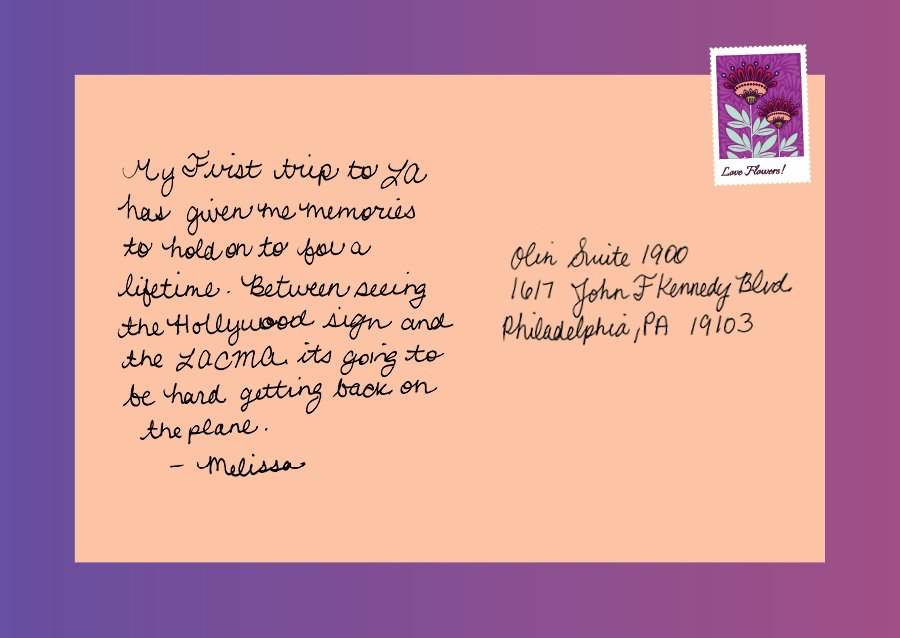 My First trip to LA
has given me memories
to hold on to for a
lifetime. Between seeing
the Hollywood sign and
the LACMA its going to
be hard getting back on
the plane.
- Melissa
Love Flowers!
Olin Suite 1900
1617 John F Kennedy Blvd
Philadelphia, PA 19103